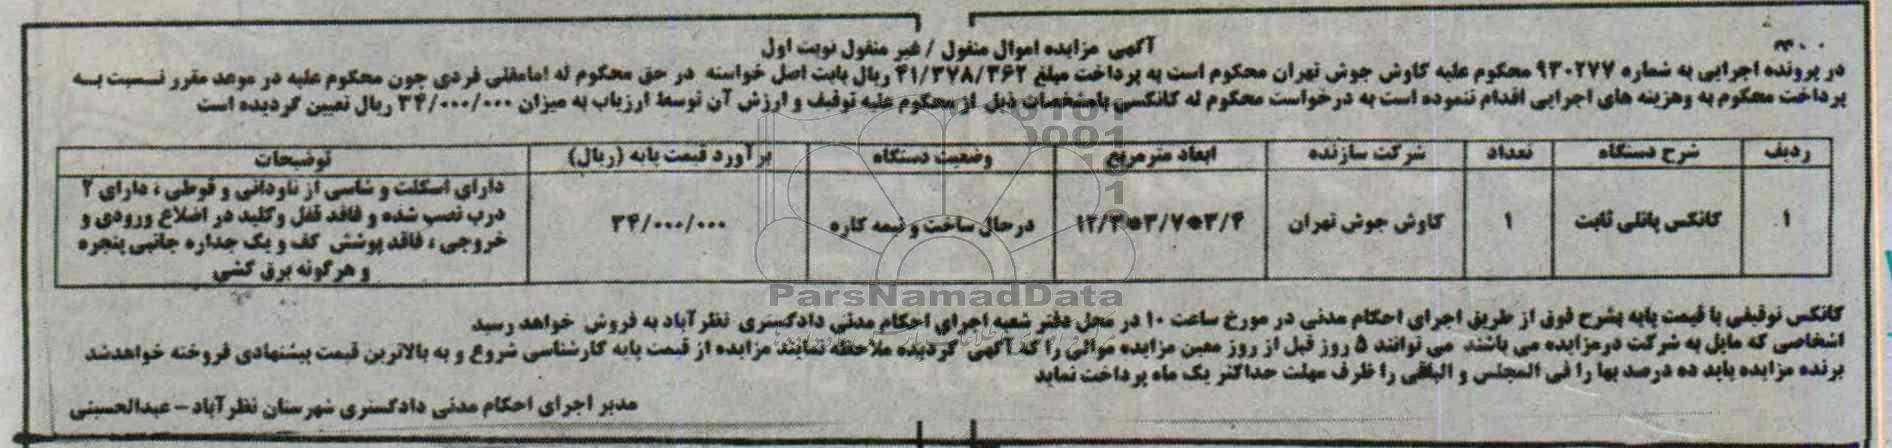 آگهی مزایده اموال منقول / غیر منقول نوبت اول
در پرونده اجرایی به شماره ۹۳۰۲۷۷ محکوم علیه کاوش جوش تهران محکوم است به پرداخت مبلغ ۴۱/۳۷۸/۳۶۲ ریال بابت اصل خواسته در حق محکوم له امامقلی فردی چون محکوم علیه در موعد مقرر نسبت به
پرداخت محکوم به وهزینه های اجرایی اقدام ننموده است به درخواست محکوم له کانکسی بامشخصات ذیل از محکوم علیه توقیف و ارزش آن توسط ارزیاب به میزان ۳۴/۰۰۰/۰۰۰ ریال تعیین گردیده است
ردیف شرح دستگاه تعداد شرکت سازنده ابعاد مترمربع وضعیت دستگاه برآورد قیمت پایه (ریال) توضیحات
۱ کانکس پانلی ثابت ۱ کاوش جوش تهران ۱۲/۳*۳/۷*۳/۴ درحال ساخت و نیمه کاره ۳۴/۰۰۰/۰۰۰
دارای اسکلت و شاسی از ناودانی و قوطی ، دارای ۲
درب نصب شده و فاقد قفل وکلید در اضلاع ورودی و
خروجی ، فاقد پوشش کف و یک جداره جانبی پنجره
و هرگونه برق کشی
کانکس توقیفی با قیمت پایه بشرح فوق از طریق اجرای احکام مدنی در مورخ ساعت ۱۰ در محل دفتر شعبه اجرای احکام مدنی دادگستری نظرآباد به فروش خواهد رسید
اشخاصی که مایل به شرکت درمزایده می باشند می توانند ۵ روز قبل از روز معین مزایده موالی را که آگهی گردیده ملاحظه نمایند مزایده از قیمت پایه کارشناسی شروع و به بالاترین قیمت پیشنهادی فروخته خواهدشد
برنده مزایده باید ده درصد بها را فی المجلس و الباقی را ظرف مهلت حداکثر یک ماه پرداخت نماید
مدیر اجرای احکام مدنی دادگستری شهرستان نظرآباد - عبدالحسینی
ParsNamadData